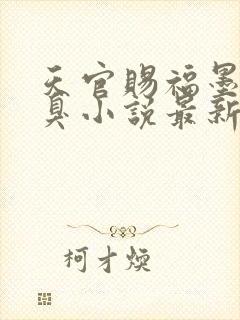 天官赐福墨
臭小说最新
柯才焕